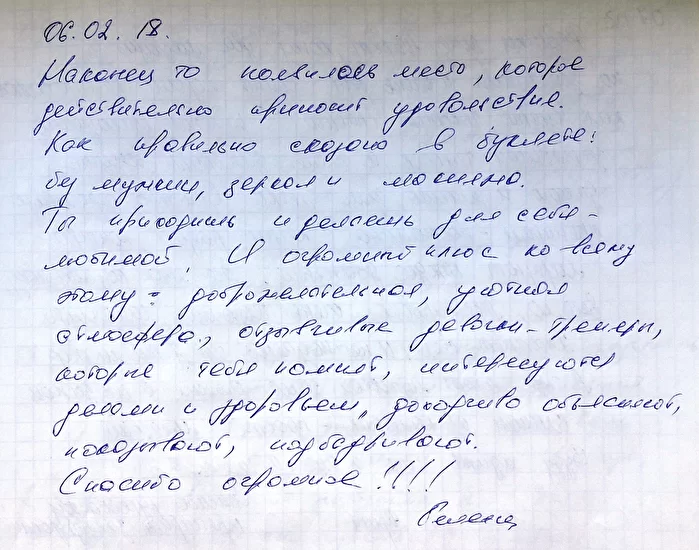 06.02.18.
Наконец то появилось место, которое
действительно приносит удовольствие.
Как правильно сказано в буклете:
без мужчин, зеркал и макияжа.
Ты приходишь и делаешь для себя-
любимой. И огромный плюс ко всему
этому - доброжелательная, уютная
атмосфера, отзывчивые девочки-тренеры,
которые тебя помнят, интересуются
делами и здоровьем, доходчиво объясняют,
показывают, подбадривают.
Спасибо огромное!!!!!